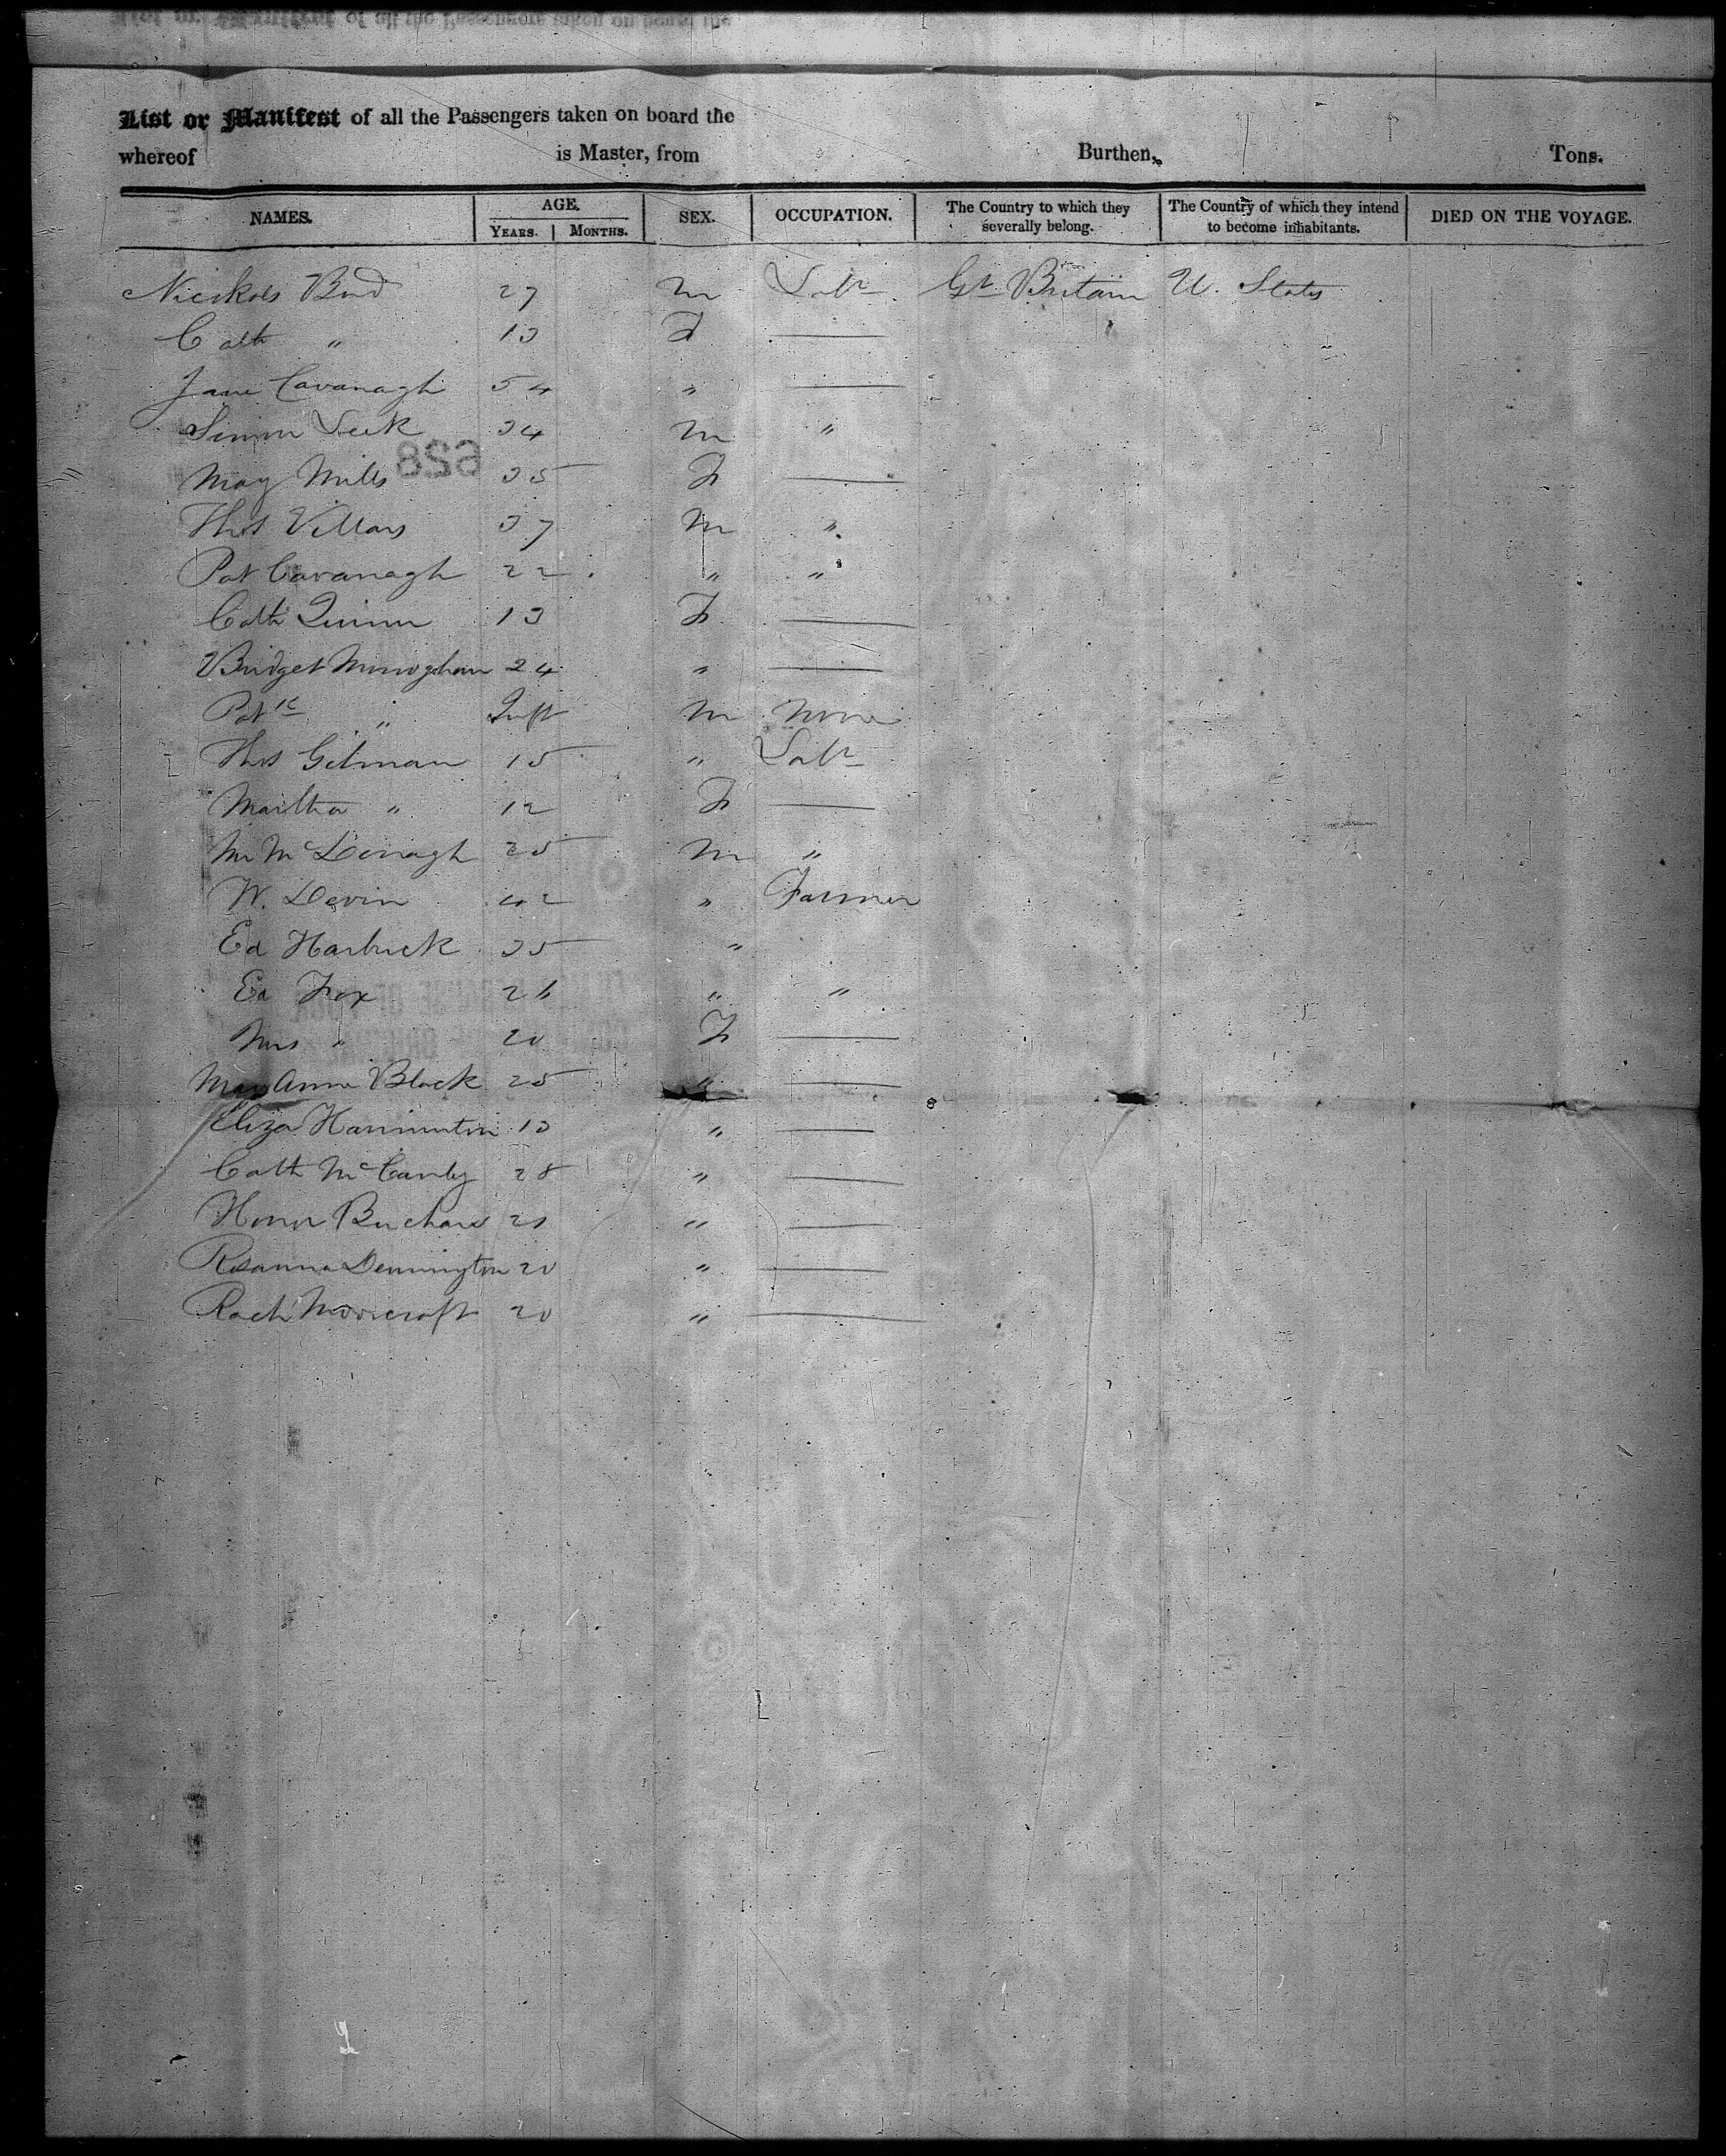 List or Manifest of all the Passengers taken on board the
whereof is Master, from Burthen, Tons.
NAMES. AGE. YEARS. MONTHS. SEX. OCCUPATION. The Country to which they severally belong. The Country of which they intend to become inhabitants. DIED ON THE VOYAGE.
Nickols 27 M Labr Gt Britain U. States
Cath " 13 F —
Jane Cavanagh 54 " —
Simon Leek 34 M "
May Mills 35 F —
Thos Villars 37 M "
Pat Cavanagh 22 " "
Cath Quinn 13 F —
Bridget 24 " —
Patk " Inft M None
Thos Gilman 15 " Labr
Martha " 12 F —
25 M "
W. Devin 42 " Farmer
Ed 35 "
Ed Fox 26 " "
Mrs " 20 F —
May Anne Black 25 " —
Eliza 13 " —
Cath 28 " —
Honor " —
Rosanna Dennington 20 " —
Rach Moorcroft 20 " —
628